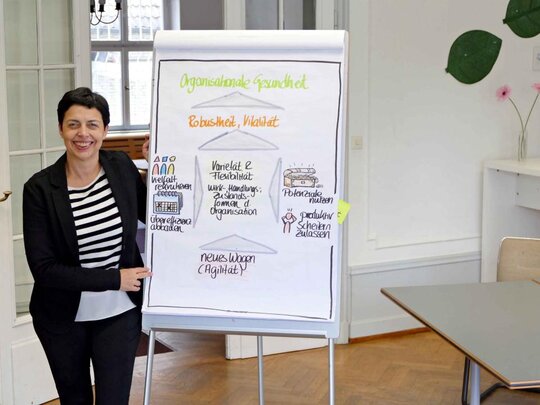 Organisationale Gesundheit
Robustheit, Vitalität
Vielfalt
rekrutieren
Übereffizienz
abbauen
Varietät &
Flexibilität
Wirk-Handlungs-,
Zustands-
formen d.
Organisation
Potenziale
nutzen
produktiv
Scheitern
zulassen
neues Wagen
(Agilität)